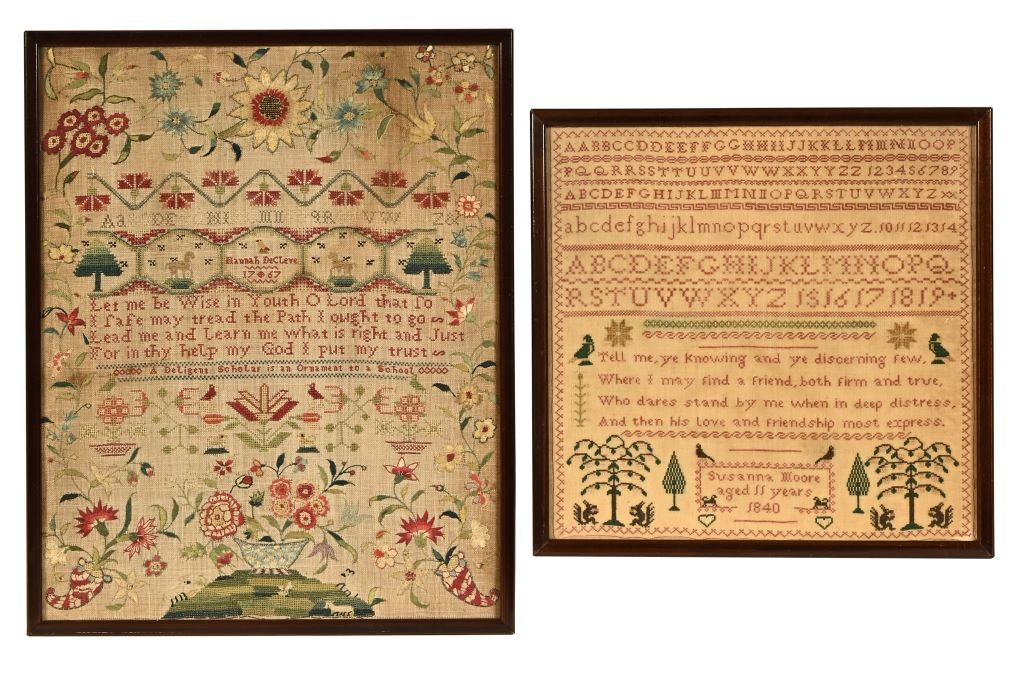 Aa DE HI III QR VW Zz
Hannah DeCleve
1767
Let me be Wise in Youth O Lord that so
I safe may tread the Path I ought to go
Lead me and Learn me what is right and Just
For in thy help my God I put my trust
A Deligent Scholar is an Ornament to a School
AABBCCDDEEFFGGHHIIJJKKLLMMNNOOP
PQQRRSSTTUUVVWWXXYYZZ 123456789
ABCDEFGHIJKLMNOPQRSTUVWXYZ
abcdefghijklmnopqrstuvwxyz. 10 11 12 13 14
ABCDEFGHIJKLMNOPQ
RSTUVWXYZ 15 16 17 18 19
Tell me, ye knowing and ye discerning few,
Where I may find a friend, both firm and true,
Who dares stand by me when in deep distress,
And then his Love and friendship most express.
Susanna Moore
aged 11 years
1840